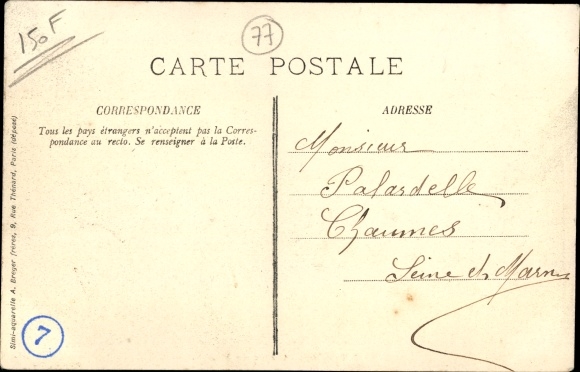 150F
77
CARTE POSTALE
CORRESPONDANCE
Tous les pays étrangers n'acceptent pas la Corres-
pondance au recto. Se renseigner à la Poste.
ADRESSE
Monsieur
Palardelle
Chaumes
Seine et Marne
Simi-aquarelle A. Breger frères, 9, Rue Thénard, Paris (déposé)
7